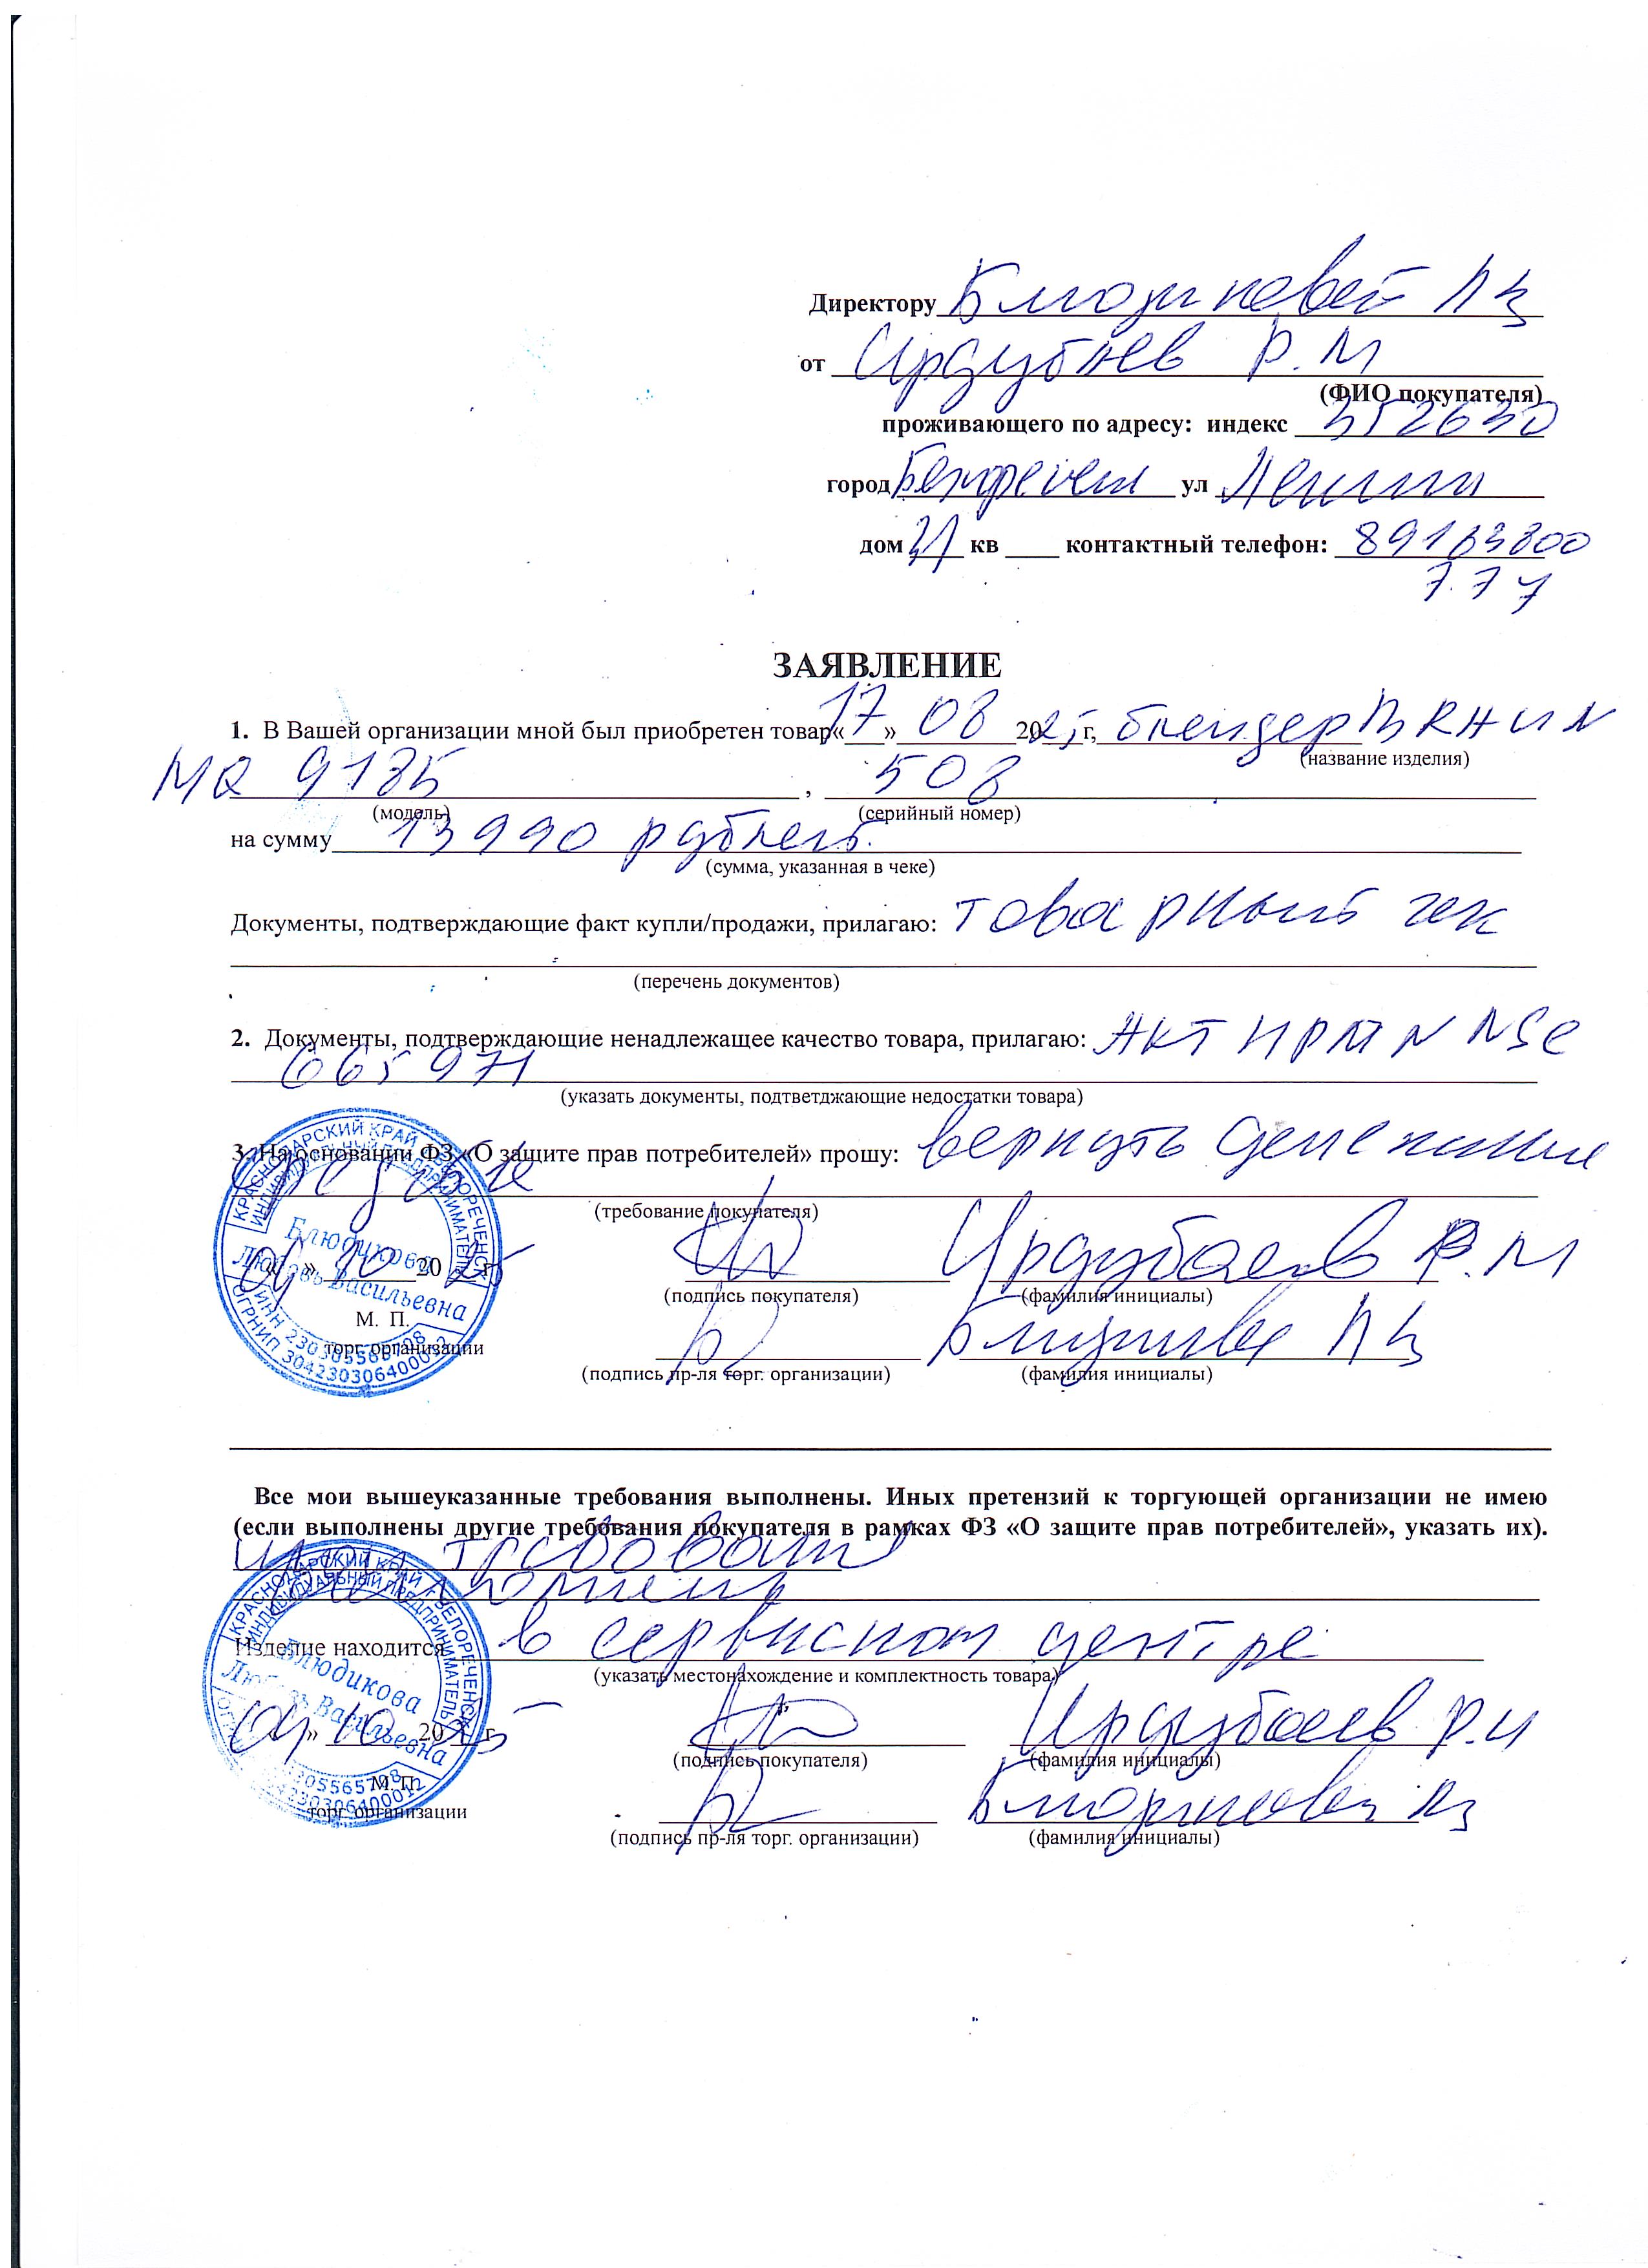 Директору Блюдиковой Л В
от Ирдубаев Р.М
(ФИО покупателя)
проживающего по адресу: индекс 352630
город Белореченск ул Ленина
дом 31 кв ____ контактный телефон: 89183800
777
ЗАЯВЛЕНИЕ
1. В Вашей организации мной был приобретен товар «17» 08 2025 г, блендер BRAUN
(название изделия)
MQ 9185 , 508
(модель) (серийный номер)
на сумму 13990 рублей.
(сумма, указанная в чеке)
Документы, подтверждающие факт купли/продажи, прилагаю: товарный чек
(перечень документов)
2. Документы, подтверждающие ненадлежащее качество товара, прилагаю: АКТ НРП N NSC
665971
(указать документы, подтветджающие недостатки товара)
3. На основании ФЗ «О защите прав потребителей» прошу: вернуть денежные
средства
(требование покупателя)
«04» 10 2025 г.
Ирдубаев Р.М
(подпись покупателя) (фамилия инициалы)
М. П.
торг. организации
Блюдикова Л В
(подпись пр-ля торг. организации) (фамилия инициалы)
КРАСНОДАРСКИЙ КРАЙ г. БЕЛОРЕЧЕНСК
ИНДИВИДУАЛЬНЫЙ ПРЕДПРИНИМАТЕЛЬ
Блюдикова
Любовь Васильевна
ИНН 230305565708
ОГРНИП 304230306400012
Все мои вышеуказанные требования выполнены. Иных претензий к торгующей организации не имею
(если выполнены другие требования покупателя в рамках ФЗ «О защите прав потребителей», указать их).
требования
выполнены
Изделие находится в сервисном центре
(указать местонахождение и комплектность товара)
«04» 10 2025 г.
Ирдубаев Р.М
(подпись покупателя) (фамилия инициалы)
М. П.
торг. организации
Блюдикова Л В
(подпись пр-ля торг. организации) (фамилия инициалы)
КРАСНОДАРСКИЙ КРАЙ г. БЕЛОРЕЧЕНСК
ИНДИВИДУАЛЬНЫЙ ПРЕДПРИНИМАТЕЛЬ
Блюдикова
Любовь Васильевна
305565708
4230306400012